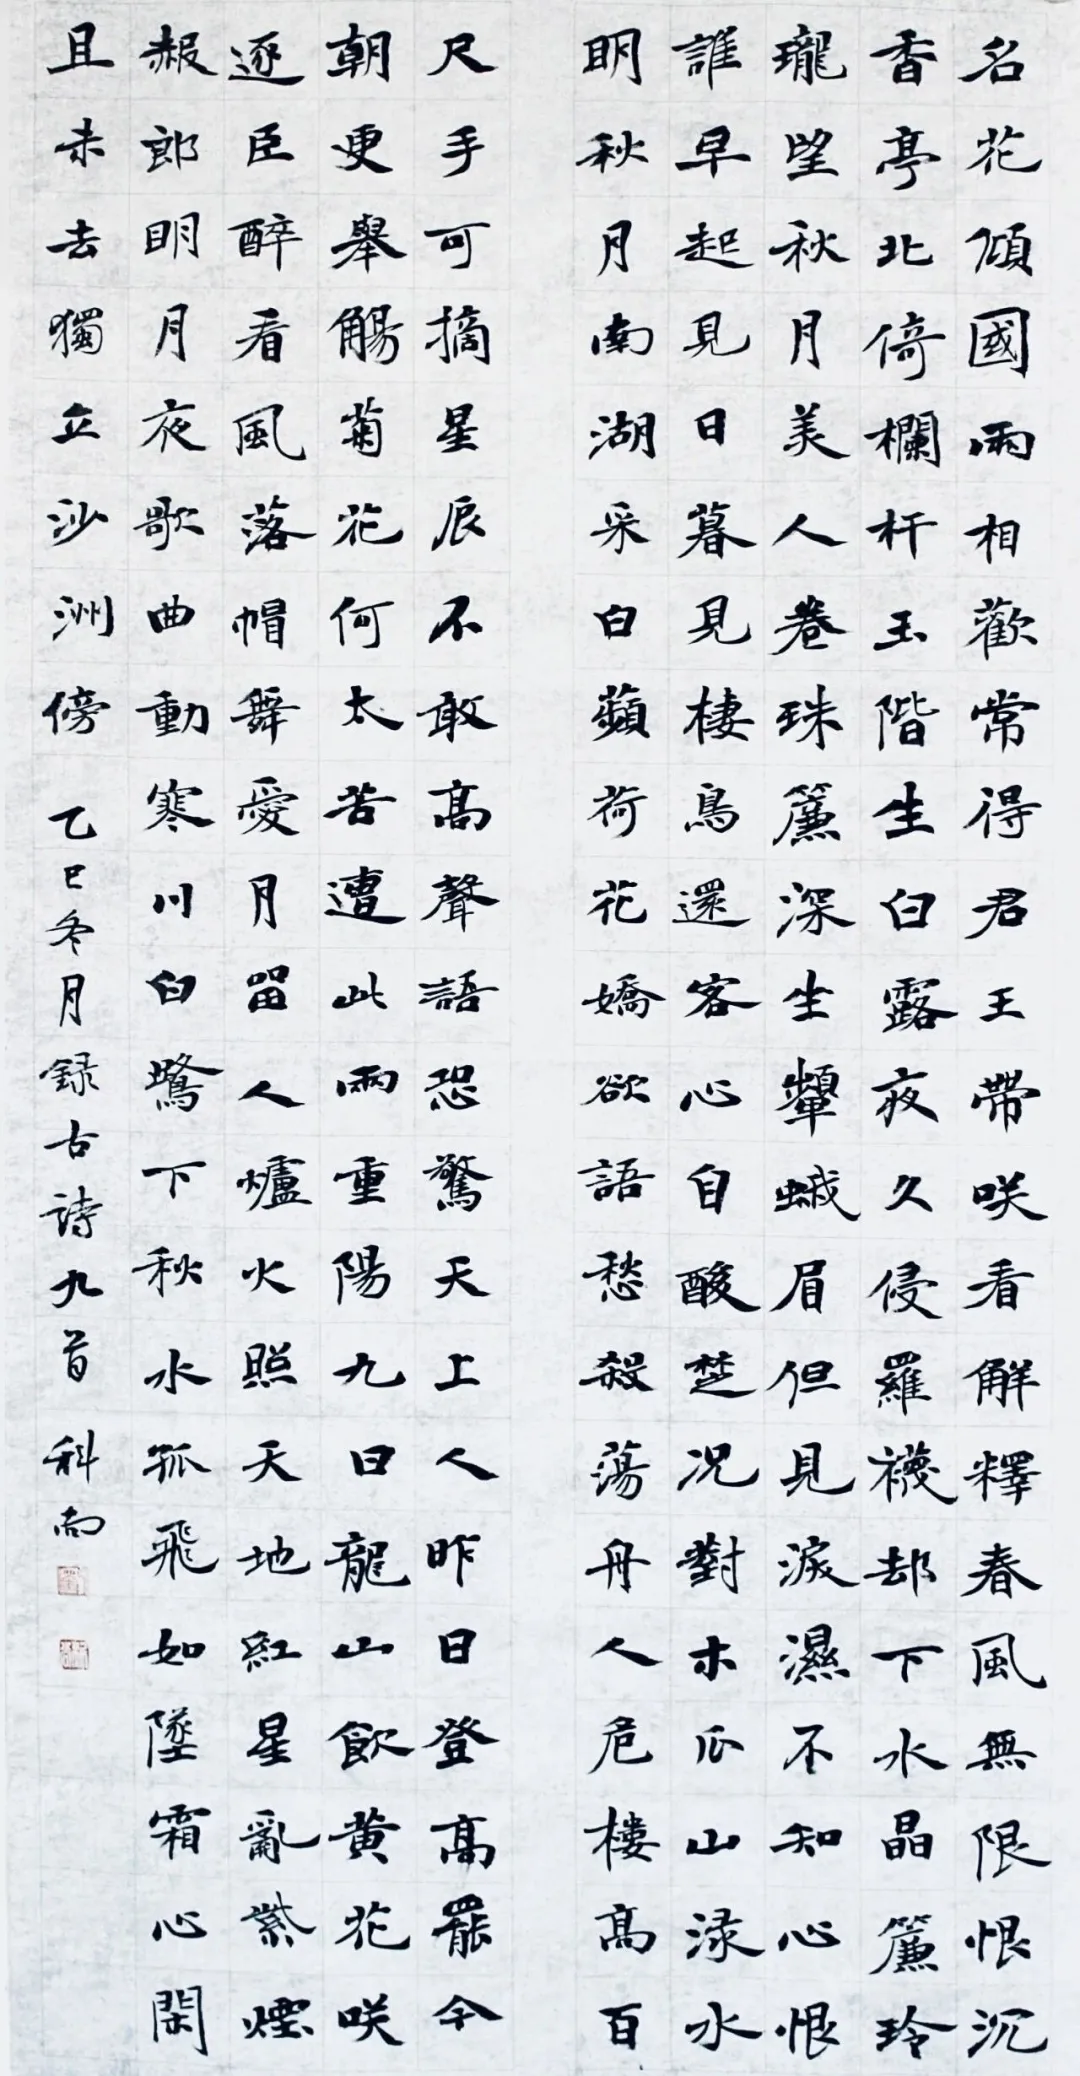 名花傾國兩相歡常得君王帶咲看解釋春風無限恨沉
香亭北倚欄杆玉階生白露夜久侵羅襪却下水晶簾玲
瓏望秋月美人卷珠簾深坐顰蛾眉但見淚濕不知心恨
誰早起見日暮見棲鳥還客心自酸楚况對木瓜山淥水
明秋月南湖采白蘋荷花嬌欲語愁殺蕩舟人危樓高百
尺手可摘星辰不敢高聲語恐驚天上人昨日登高罷今
朝更舉觴菊花何太苦遭此兩重陽九日龍山飲黃花咲
逐臣醉看風落帽舞愛月留人爐火照天地紅星亂紫煙
赧郎明月夜歌曲動寒川白鷺下秋水孤飛如墜霜心閑
且未去獨立沙洲傍 乙巳冬月録古詩九首 科尚